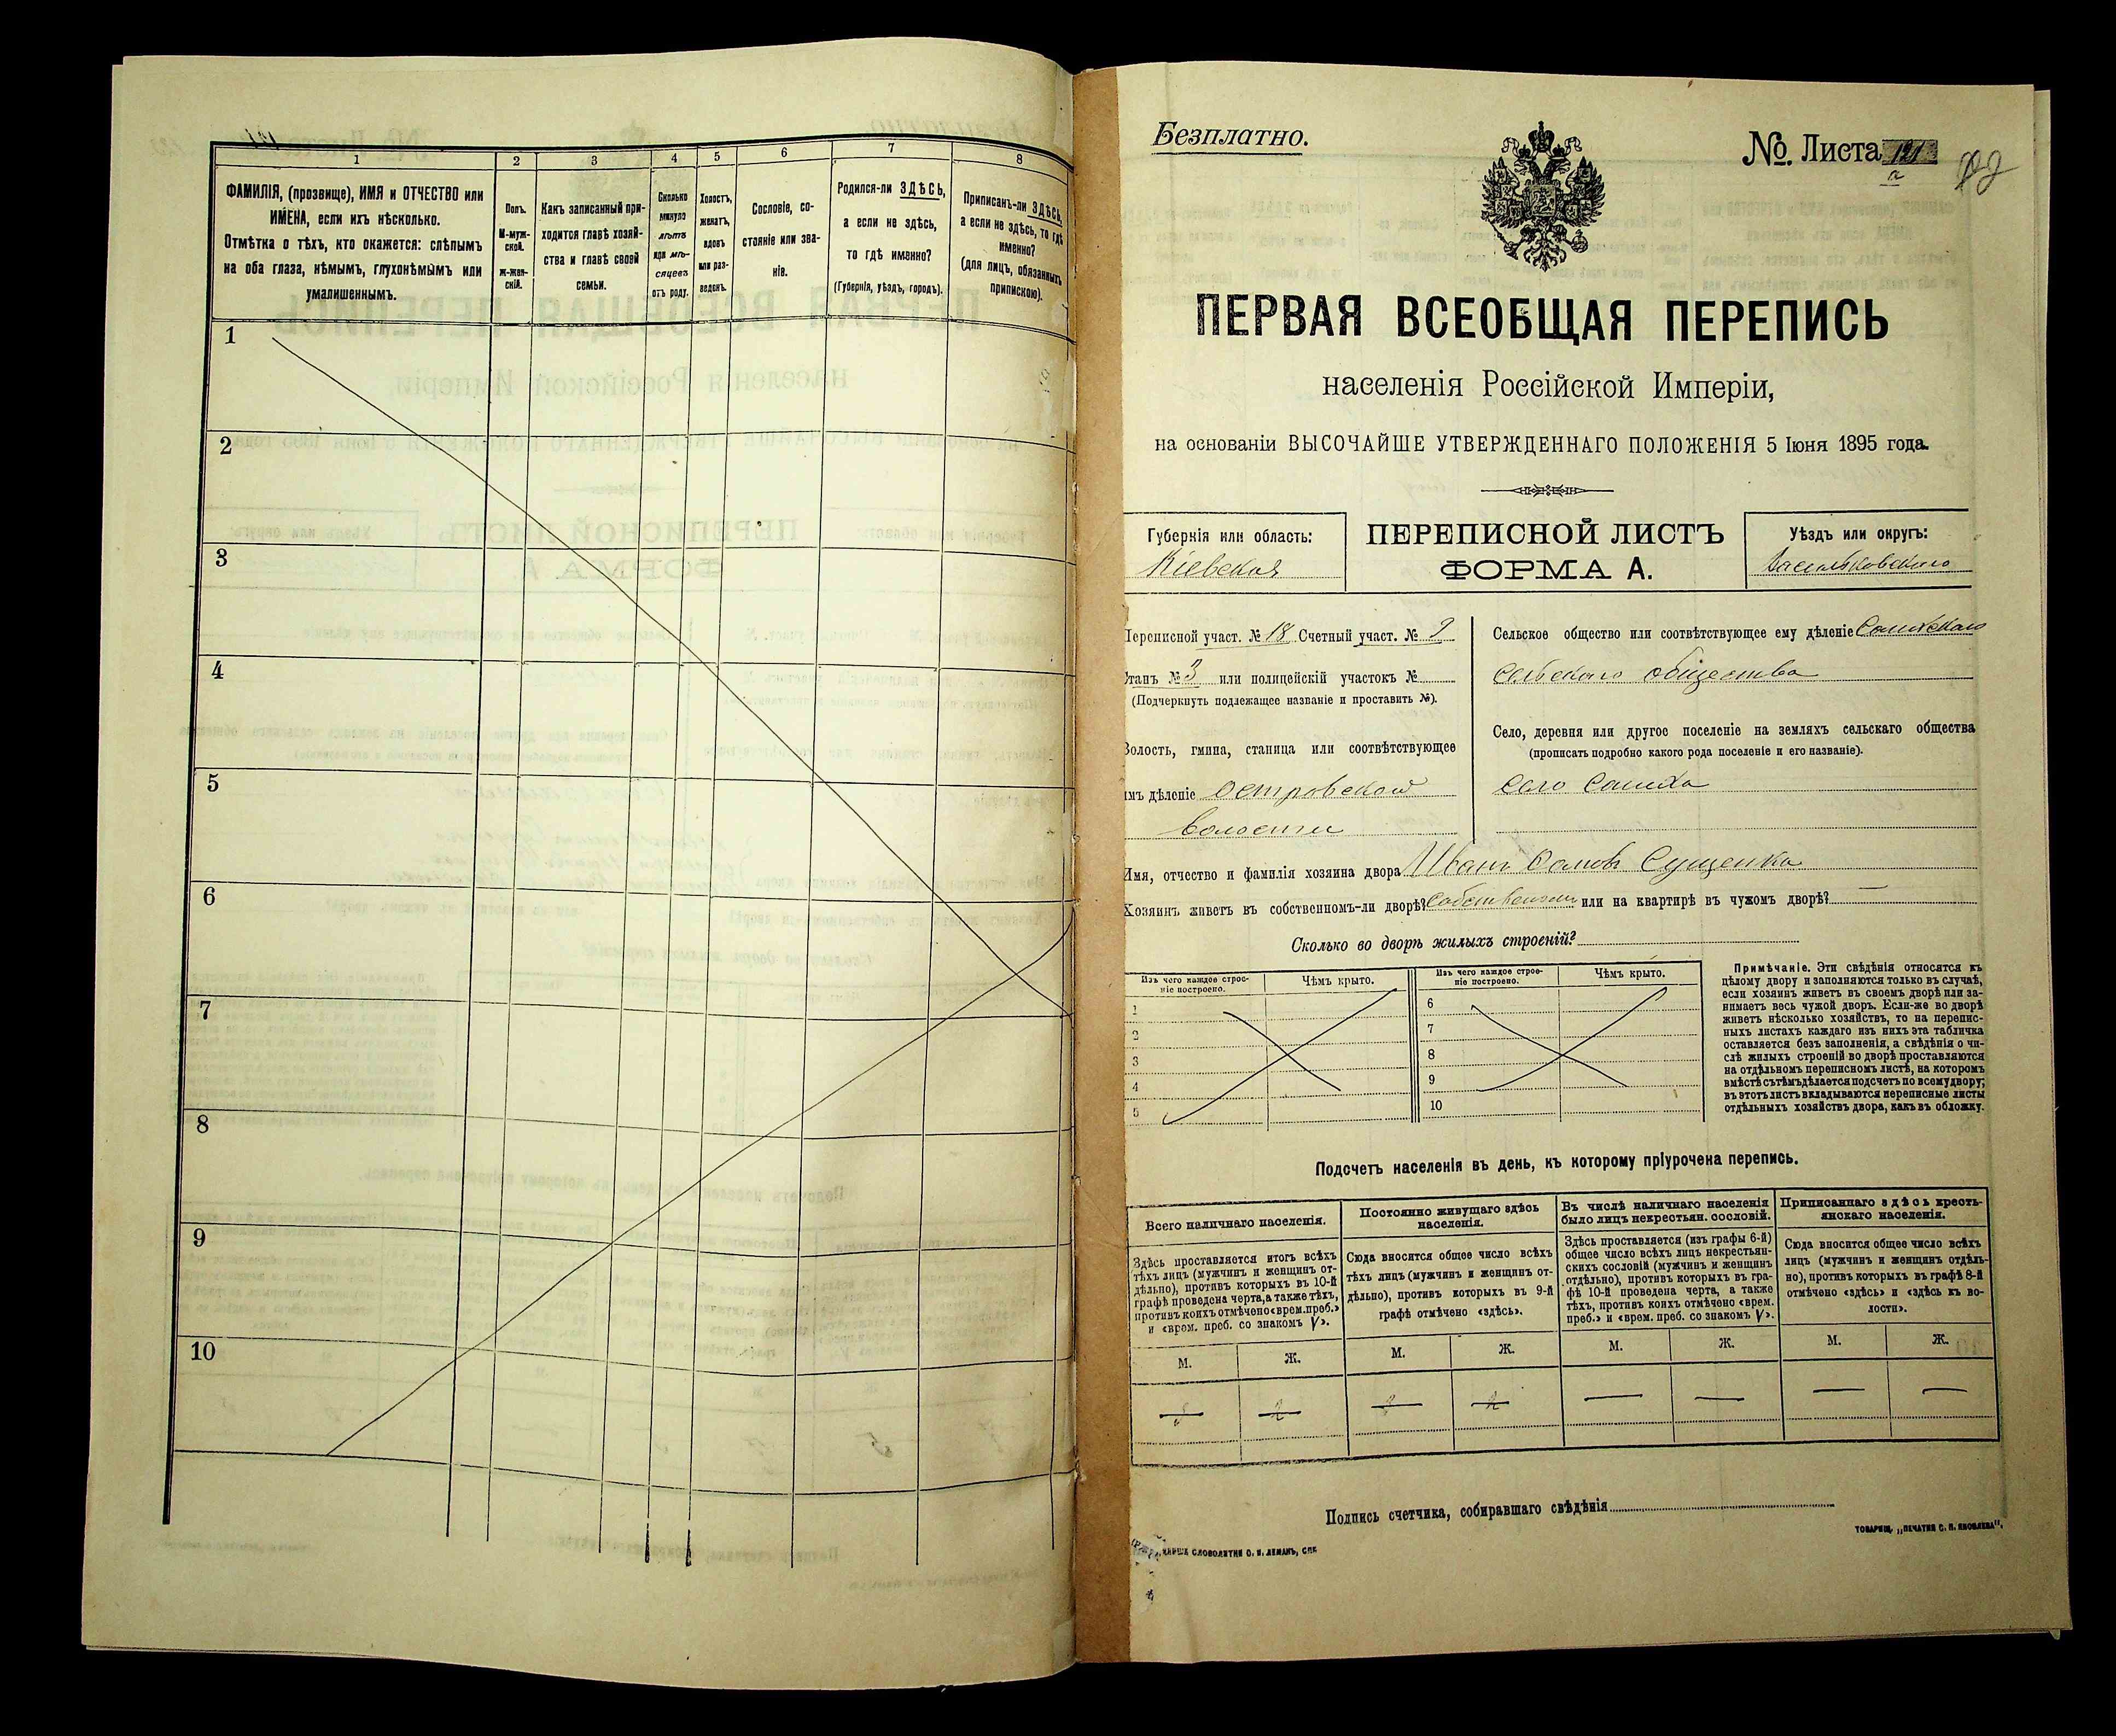 1
2
3
4
5
6
7
8
ФАМИЛІЯ, (прозвище), ИМЯ и ОТЧЕСТВО или
ИМЕНА, если ихъ нѣсколько.
Отмѣтка о тѣхъ, кто окажется: слѣпымъ
на оба глаза, нѣмымъ, глухонѣмымъ или
умалишеннымъ.
Полъ.
М-муж-
ской.
ж-жен-
скій.
Какъ записанный при-
ходится главѣ хозяй-
ства и главѣ своей
семьи.
Сколько
минуло
лѣтъ
или мѣ-
сяцевъ
отъ роду.
Холостъ,
женатъ,
вдовъ
или раз-
веденъ.
Сословіе, со-
стояніе или зва-
ніе.
Родился-ли ЗДѢСЬ,
а если не здѣсь,
то гдѣ именно?
(Губернія, уѣздъ, городъ).
Приписанъ-ли ЗДѢСЬ,
а если не здѣсь, то гдѣ
именно?
(для лицъ, обязанныхъ
припискою).
1
2
3
4
5
6
7
8
9
10
Безплатно.
№ Листа 121
а
ПЕРВАЯ ВСЕОБЩАЯ ПЕРЕПИСЬ
населенія Россійской Имперіи,
на основаніи ВЫСОЧАЙШЕ УТВЕРЖДЕННАГО ПОЛОЖЕНІЯ 5 Іюня 1895 года.
Губернія или область:
Кіевская
ПЕРЕПИСНОЙ ЛИСТЪ
ФОРМА А.
Уѣздъ или округъ:
Васильковскаго
Переписной участ. № 18 Счетный участ. №
Станъ № 3 или полицейскій участокъ №
(Подчеркнуть подлежащее названіе и проставить №).
Волость, гмина, станица или соотвѣтствующее
имъ дѣленіе Островской
волости
Сельское общество или соотвѣтствующее ему дѣленіе
сельскаго общества
Село, деревня или другое поселеніе на земляхъ сельскаго общества
(прописать подробно какого рода поселеніе и его названіе).
Село
Имя, отчество и фамилія хозяина двора Иванъ Сущенко
Хозяинъ живетъ въ собственномъ-ли дворѣ? собственномъ или на квартирѣ въ чужомъ дворѣ? —
Сколько во дворѣ жилыхъ строеній?
Изъ чего каждое строе-
ніе построено.
Чѣмъ крыто.
1
2
3
4
5
Изъ чего каждое строе-
ніе построено.
Чѣмъ крыто.
6
7
8
9
10
Примѣчаніе. Эти свѣдѣнія относятся къ
цѣлому двору и заполняются только въ случаѣ,
если хозяинъ живетъ въ своемъ дворѣ или за-
нимаетъ весь чужой дворъ. Если-же во дворѣ
живетъ нѣсколько хозяйствъ, то на перепис-
ныхъ листахъ каждаго изъ нихъ эта табличка
оставляется безъ заполненія, а свѣдѣнія о чи-
слѣ жилыхъ строеній во дворѣ проставляются
на отдѣльномъ переписномъ листѣ, на которомъ
вмѣстѣ съ тѣмъ дѣлается подсчетъ по всему двору;
въ этотъ листъ вкладываются переписные листы
отдѣльныхъ хозяйствъ двора, какъ въ обложку.
Подсчетъ населенія въ день, къ которому пріурочена перепись.
Всего наличнаго населенія.
Здѣсь проставляется итогъ всѣхъ
тѣхъ лицъ (мужчинъ и женщинъ от-
дѣльно), противъ которыхъ въ 10-й
графѣ проведена черта, а также тѣхъ,
противъ коихъ отмѣчено «врем. преб.»
и «врем. преб. со знакомъ V».
М.
Ж.
Постоянно живущаго здѣсь
населенія.
Сюда вносится общее число всѣхъ
тѣхъ лицъ (мужчинъ и женщинъ от-
дѣльно), противъ которыхъ въ 9-й
графѣ отмѣчено «здѣсь».
М.
Ж.
Въ числѣ наличнаго населенія
было лицъ некрестьян. сословій.
Здѣсь проставляется (изъ графы 6-й)
общее число всѣхъ лицъ некрестьян-
скихъ сословій (мужчинъ и женщинъ
отдѣльно), противъ которыхъ въ гра-
фѣ 10-й проведена черта, а также
тѣхъ, противъ коихъ отмѣчено «врем.
преб.» и «врем. преб. со знакомъ V».
М.
Ж.
Приписаннаго здѣсь кресть-
янскаго населенія.
Сюда вносится общее число всѣхъ
лицъ (мужчинъ и женщинъ отдѣль-
но), противъ которыхъ въ графѣ 8-й
отмѣчено «здѣсь» и «здѣсь къ во-
лости».
М.
Ж.
Подпись счетчика, собиравшаго свѣдѣнія
СЛОВОЛИТНИ О. И. ЛЕМАНЪ, СПБ
ТОВАРИЩ. „ПЕЧАТНЯ С. П. ЯКОВЛЕВА".